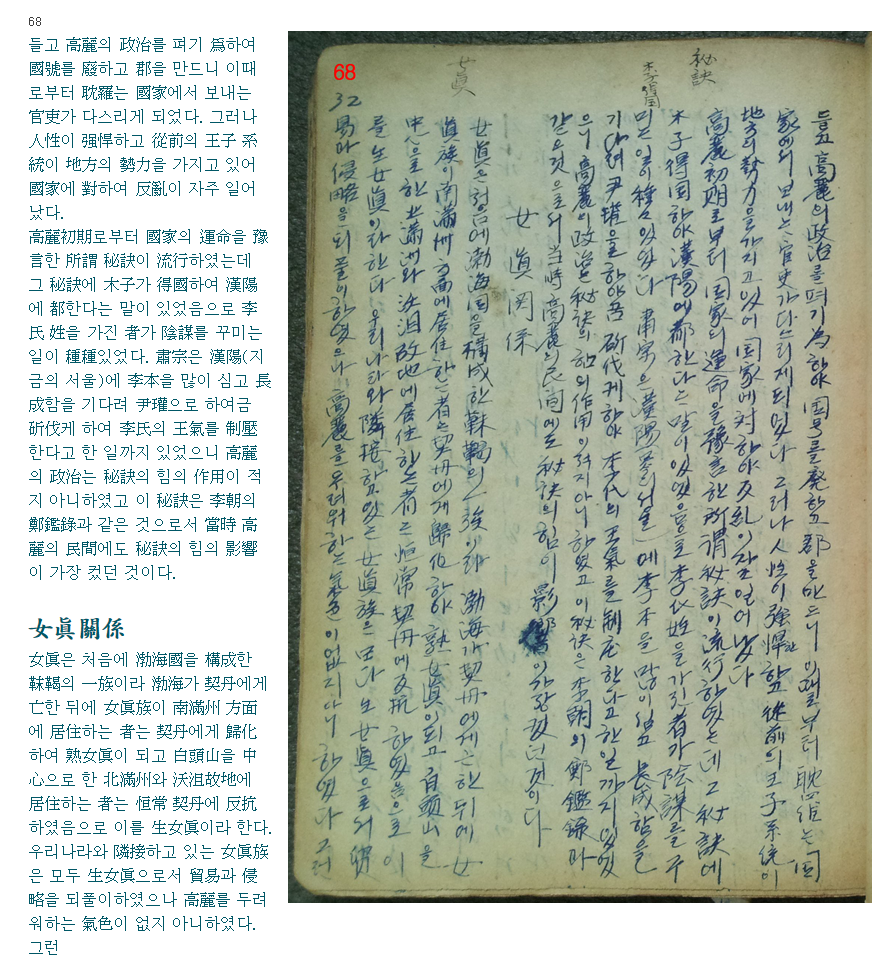 68
들고 高麗의 政治를 펴기 爲하여
國號를 廢하고 郡을 만드니 이때
로부터 耽羅는 國家에서 보내는
官吏가 다스리게 되었다. 그러나
人性이 强悍하고 從前의 王子 系
統이 地方의 勢力을 가지고 있어
國家에 對하여 反亂이 자주 일어
났다.
高麗初期로부터 國家의 運命을 豫
言한 所謂 秘訣이 流行하였는데
그 秘訣에 木子가 得國하여 漢陽
에 都한다는 말이 있었음으로 李
氏 姓을 가진 者가 陰謀를 꾸미는
일이 種種있었다. 肅宗은 漢陽(지
금의 서울)에 李本을 많이 심고 長
成함을 기다려 尹瓘으로 하여금
斫伐케 하여 李氏의 王氣를 制壓
한다고 한 일까지 있었으니 高麗
의 政治는 秘訣의 힘의 作用이 적
지 아니하였고 이 秘訣은 李朝의
鄭鑑錄과 같은 것으로서 當時 高
麗의 民間에도 秘訣의 힘의 影響
이 가장 컸던 것이다.
女眞關係
女眞은 처음에 渤海國을 構成한
靺鞨의 一族이라 渤海가 契丹에게
亡한 뒤에 女眞族이 南滿州 方面
에 居住하는 者는 契丹에게 歸化
하여 熟女眞이 되고 白頭山을 中
心으로 한 北滿州와 沃沮故地에
居住하는 者는 恒常 契丹에 反抗
하였음으로 이를 生女眞이라 한다.
우리나라와 隣接하고 있는 女眞族
은 모두 生女眞으로서 貿易과 侵
略을 되풀이하였으나 高麗를 두려
워하는 氣色이 없지 아니하였다.
그런
68
32
秘訣
女眞
들고 高麗의 政治를 펴기 爲하야 国号를 廃하고 郡을 만드니 이때로부터 耽羅는 国
家에서 보내는 官吏가 다스리게 되엿다 그러나 人性이 強悍하고 從前의 王子系統이
地方의 勢力을 가지고 있어 国家에 対하야 反乱이 자조 일어낫다
高麗初期로부터 国家의 運命을 豫言한 所謂 秘訣이 流行하엿는데 그 秘訣에
木子得国하야 漢陽에 都한다는 말이 있엇음으로 李氏姓을 가진 者가 陰謀를 꾸
미는 일이 種々 있엇다 肅宗은 漢陽 서울)에 李木을 많이 심고 長成함을
기다려 尹瓘으로 하야곰 斫伐케하야 李氏의 王氣를 制圧한다고 한 일까지 있엇
으니 高麗의 政治는 秘訣의 힘의 作用이 적지 아니하엿고 이 秘訣은 李朝의 鄭鑑錄과
같은 것으로서 当時 高麗의 民間에도 秘訣의 힘이 影響이 가장 컷던 것이다
女眞関係
女眞은 처음에 渤海国을 構成한 靺鞨의 一族이라 渤海가 契丹에게 亡한 뒤에 女
眞族이 南滿洲 方面에 居住하는 者는 契丹에게 歸化하야 熟女眞이 되고 白頭山을
中心으로 한 北滿洲와 沃沮故地에 居住하는 者는 恒常 契丹에 反抗하엿음으로 이
를 生女眞이라 한다 우리나라와 隣接하고 있는 女眞族은 모다 生女眞으로서 貿
易과 侵略을 되풀이하엿으나 高麗를 두려워하는 氣色이 없지 아니하엿다 그러